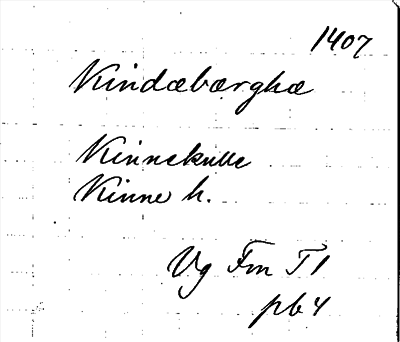 1407
Kindæbærghæ
Kinnekulle
Kinne h.
Vg Fm T1
pb 4